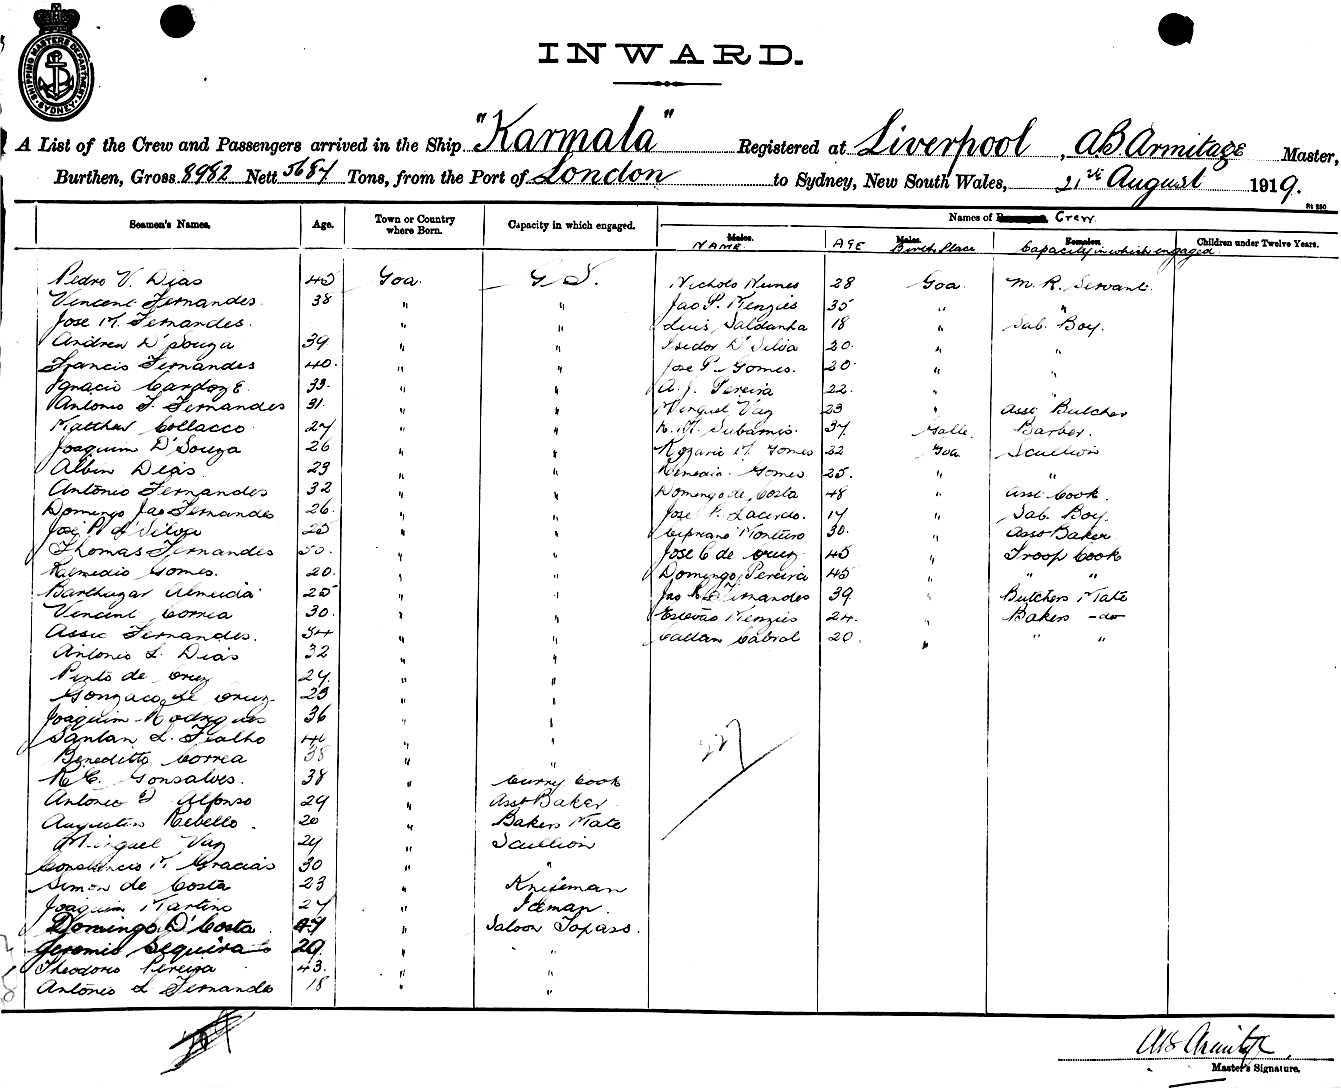 SHIPPING MASTERS DEPARTMENT SYDNEY
INWARD.
A List of the Crew and Passengers arrived in the Ship "Karmala" Registered at Liverpool, A B Armitage Master,
Burthen, Gross 8982 Nett 5684 Tons, from the Port of London to Sydney, New South Wales, 21st August 1919.
Seamen's Names. Age. Town or Country where Born. Capacity in which engaged. Names of Crew.
Males. NAME. AGE Males. Birth Place Females. Capacity in which engaged Children under Twelve Years.
Pedro V. Dias 45 Goa. G S. Nicholo Nunes 28 Goa. M. R. Servant
Vincent Fernandes. 38 " " Jao P. Menzies 35 " "
Jose M. Fernandes. " " Luis Saldanha 18 " Sab. Boy.
Andrew D'Souza 39 " " Isidor D'Silva 20. " "
Francis Fernandes 40. " " Jose P. Gomes. 20. " "
Ignacio Cardoze. 33. " " A. J. Pereira 22. " "
Antonio F. Fernandes 31. " " Minguel Vaz 23 " Asst Butcher
Matthew Collacco 27 " " Subamis. 37 Galle. Barber.
Joaquim D'Souza 26 " " Rozario M. Gomes 22 Goa Scullion
Albin Dias 23 " " Remedio Gomes 25. " "
Antonio Fernandes 32 " " Domingo de Costa 48 " Asst Cook.
Domingo Jao Fernandes 26. " " Jose P. Lacerdo. 17 " Sab. Boy.
Jose P. d'Silva 25 " " Cipriano Monteiro 30. " Asst Baker
Thomas Fernandes 50. " " Jose C de Cruz 45 " Troop Cook
Remedio Gomes. 20. " " Domingo Pereira 45 " " "
Barthazar Almeida 25 " " Jao Fernandes 39 " Butchers Mate
Vincent Correa 30. " " Estevao Menzies 24. " Bakers -do-
Assic Fernandes. 34 " " Caetan Cabral 20. " " "
Antonio L. Dias 32 " "
Pinto de Cruz 27. " "
Gonzaco de Cruz 23 " "
Joaquim Rodrigues 36 " "
Santan L. Fialho 44 " "
Beneditto Correa 38 " "
R. C. Gonsalves. 38 " Curry Cook
Antonio Alfonso 29 " Asst Baker
Augustin Rebello. 20 " Bakers Mate
Minguel Vaz 24 " Scullion
Constancio M. Gracias 30 " "
Simon de Costa 23 " Knifeman
Joaquim Martins 27 " Iceman.
Domingo D'Costa 47 " Saloon Topass.
Jeromie Sequeira 29. " "
Theodorio Pereira 43. " "
Antonio L Fernandes 18 " "
227
AB Armitage
Master's Signature.